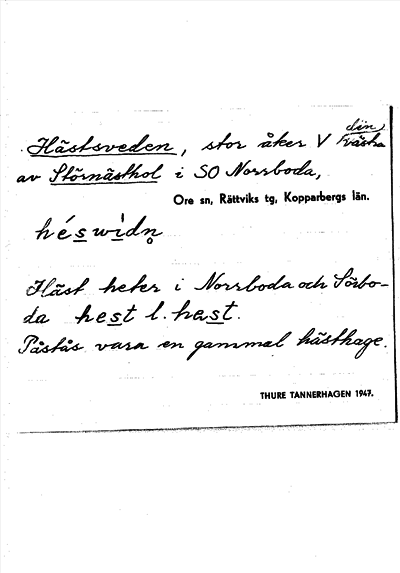 Hästsveden, stor åker V
av Störnästhol i SO Norrboda,
Ore sn, Rättviks tg, Kopparbergs län.
héswidn̥
Häst heter i Norrboda och Sörbo-
da hest l. hest.
Påstås vara en gammal hästhage.
THURE TANNERHAGEN 1947.